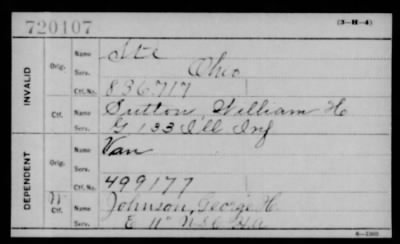 720107
(3-H-4)
INVALID
Orig.
Name
Serv. Ohio
Ctf. No. 836717
Ctf.
Name Sutton, William H
Serv. G 133 Ill Inf
DEPENDENT
Orig.
Name Van
Serv.
Ctf. No. 499177
Ctf.
Name Johnson, George H.
Serv. E 11" U S C H A